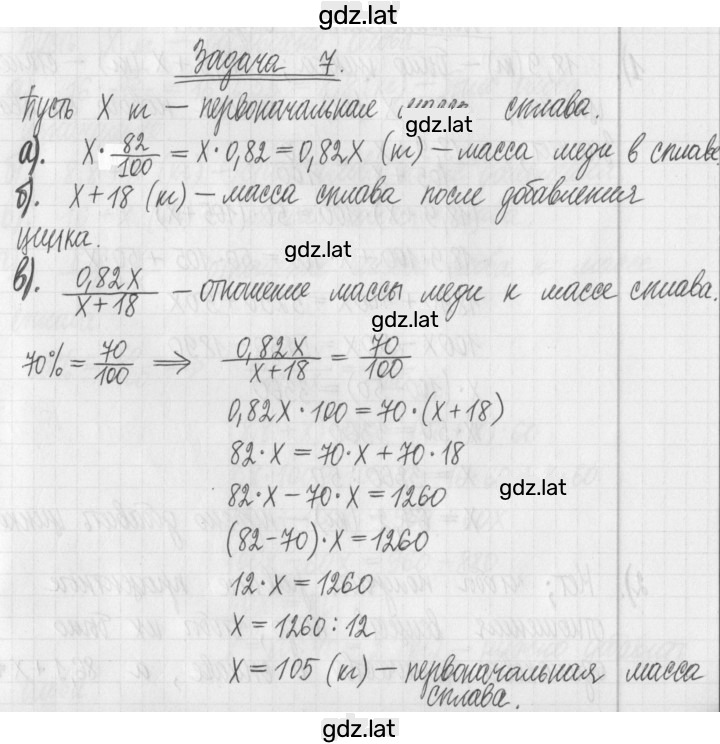 gdz.lat
Задача 7.
Пусть X т — первоначальная сплава.
gdz.lat
а). X · 82/100 = X · 0,82 = 0,82X (т) – масса меди в сплаве.
б). X + 18 (т) – масса сплава после добавления
цинка.
gdz.lat
в). 0,82X/X+18 – отношение массы меди к массе сплава.
gdz.lat
70% = 70/100 ⟹ 0,82X/X+18 = 70/100
0,82X · 100 = 70 · (X + 18)
82 · X = 70 · X + 70 · 18
82 · X – 70 · X = 1260
gdz.lat
(82 – 70) · X = 1260
12 · X = 1260
X = 1260 : 12
X = 105 (кг) – первоначальная масса
сплава.
gdz.lat